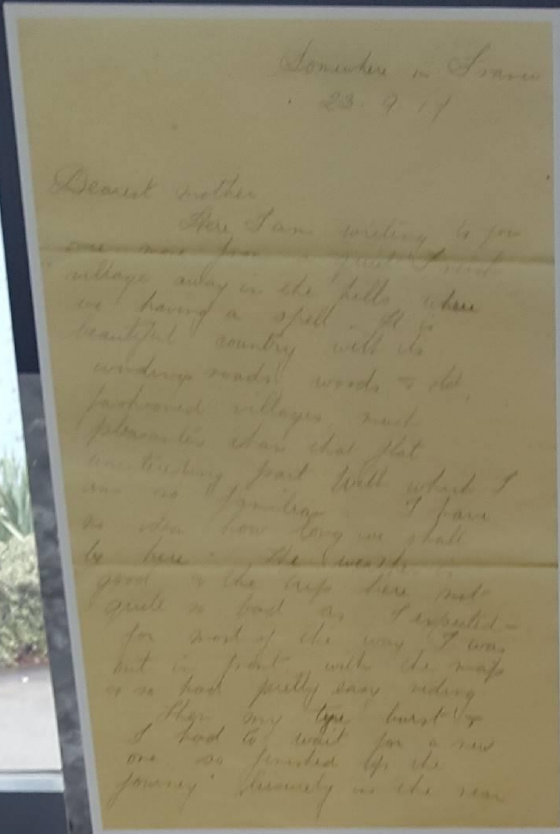 Somewhere in France
23. 9 17
Dearest Mother
Here I am writing to you
once more from a quiet French
village away in the hills where
we having a spell. It is
beautiful country with its
winding roads woods & old
fashioned villages much
pleasanter than that flat
uninteresting part with which I
am so familiar I have
no idea how long we shall
be here. The weather is
good & the trip here not
quite so bad as I expected -
for most of the way I was
out in front with the map
& so had pretty easy riding
Then my tyre burst &
I had to wait for a new
one so finished up the
journey leisurely in the rear